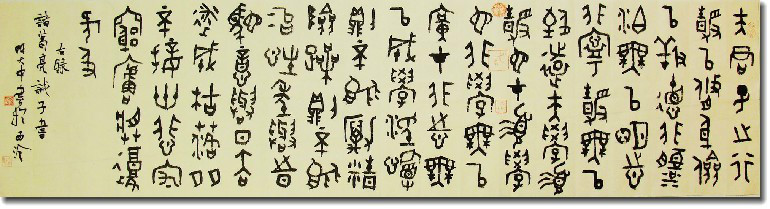 夫君子之行
靜以修身儉
以養德非澹
泊無以明志
非寧靜無以
致遠夫學須
靜也才須學
也非學無以
廣才非志無
以成學淫慢
則不能勵精
險躁則不能
治性年與時
馳意與日去
遂成枯落多
不接世悲守
窮廬將復
何及
右錄
諸葛亮誡子書
於西泠